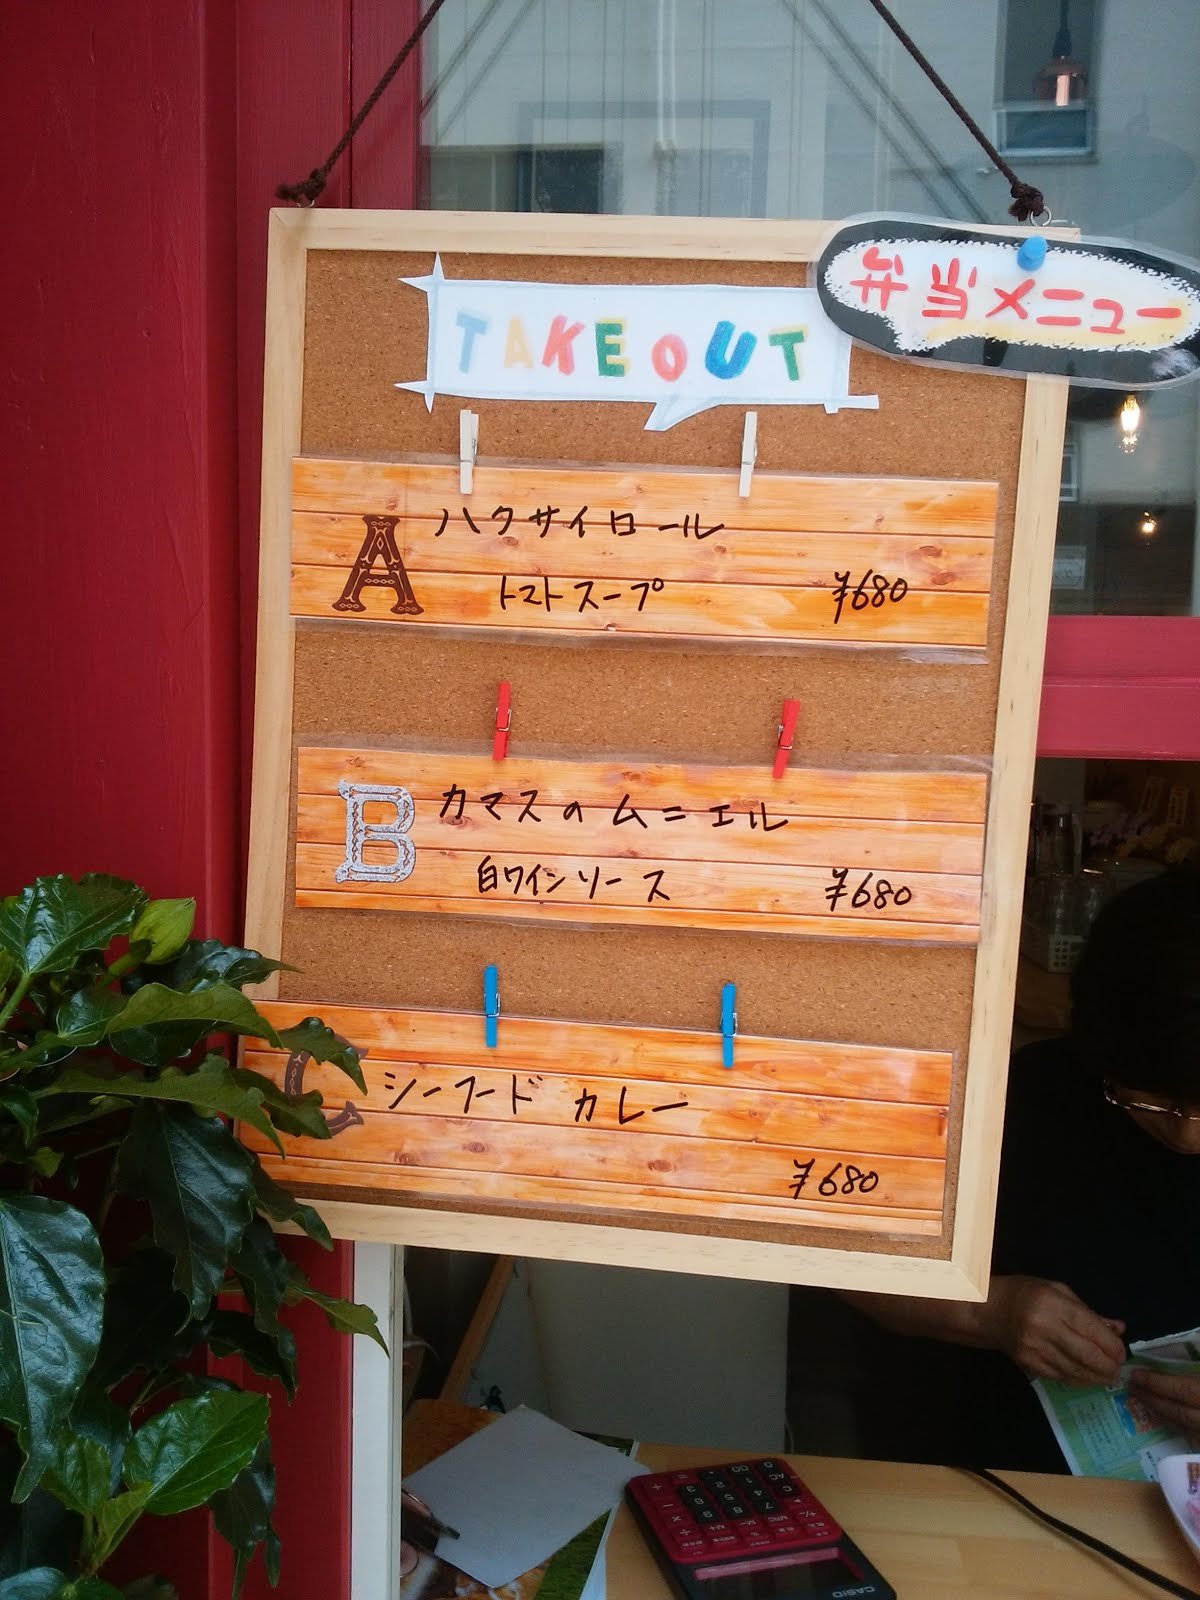 TAKE OUT
弁当メニュー
A
ハクサイロール
トマトスープ ¥680
B
カマスのムニエル
白ワインソース ¥680
C
シーフードカレー
¥680
CASIO